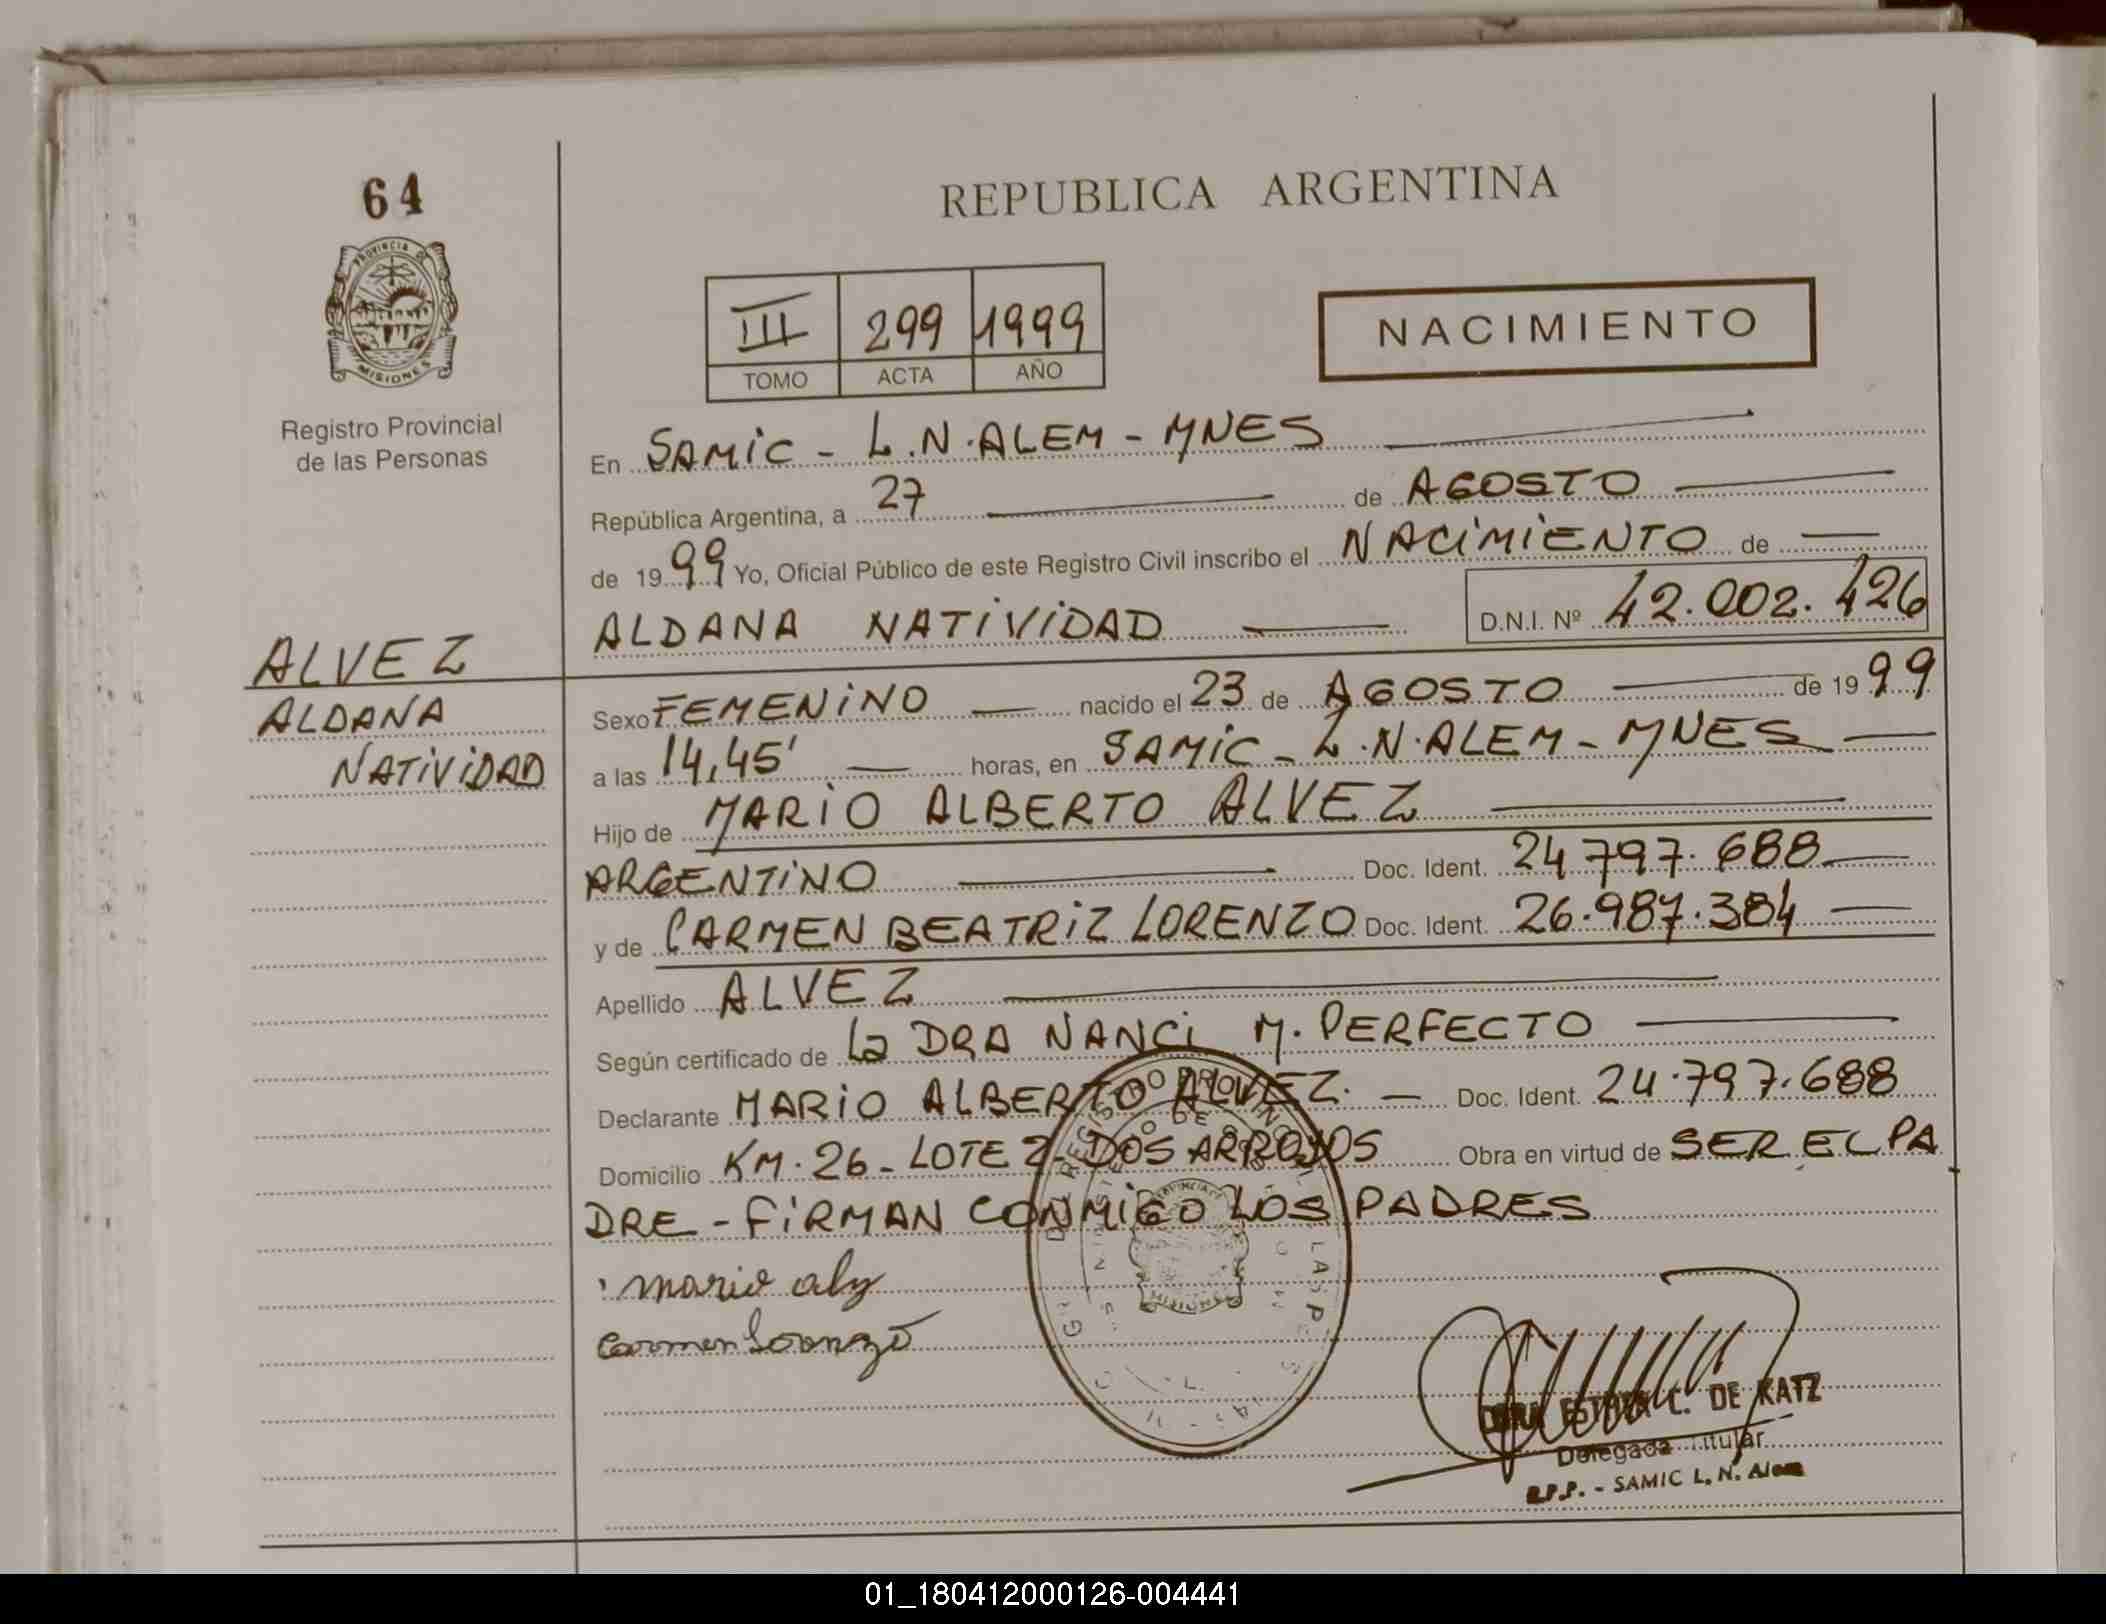 64
REPUBLICA ARGENTINA
PROVINCIA DE
MISIONES
III 299 1999
TOMO ACTA AÑO
NACIMIENTO
Registro Provincial
de las Personas
En SAMiC - L.N.ALEM - MNES
República Argentina, a 27 de AGOSTO
de 1999 Yo, Oficial Público de este Registro Civil inscribo el NACiMiENTO de
ALDANA NATiViDAD D.N.I. Nº 42.002.426
ALVEZ
ALDANA
NATiViDAD
Sexo FEMENiNO nacido el 23 de AGOSTO de 1999
a las 14,45' horas, en SAMiC - L.N.ALEM - MNES
Hijo de MARiO ALBERTO ALVEZ
ARGENTiNO Doc. Ident. 24797.688
y de CARMEN BEATRiZ LORENZO Doc. Ident. 26.987.384
Apellido ALVEZ
Según certificado de La DRA NANCi M. PERFECTO
Declarante MARiO ALBERTO ALVEZ. Doc. Ident. 24.797.688
Domicilio KM. 26 - LOTE 2 - DOS ARROYOS Obra en virtud de SER EL PA
DRE - FiRMAN CONMiGO LOS PADRES
mario
carmen
MISIONES
C. DE KATZ
Delegada Titular
R.P.P. - SAMIC L. N. Alem
01_180412000126-004441